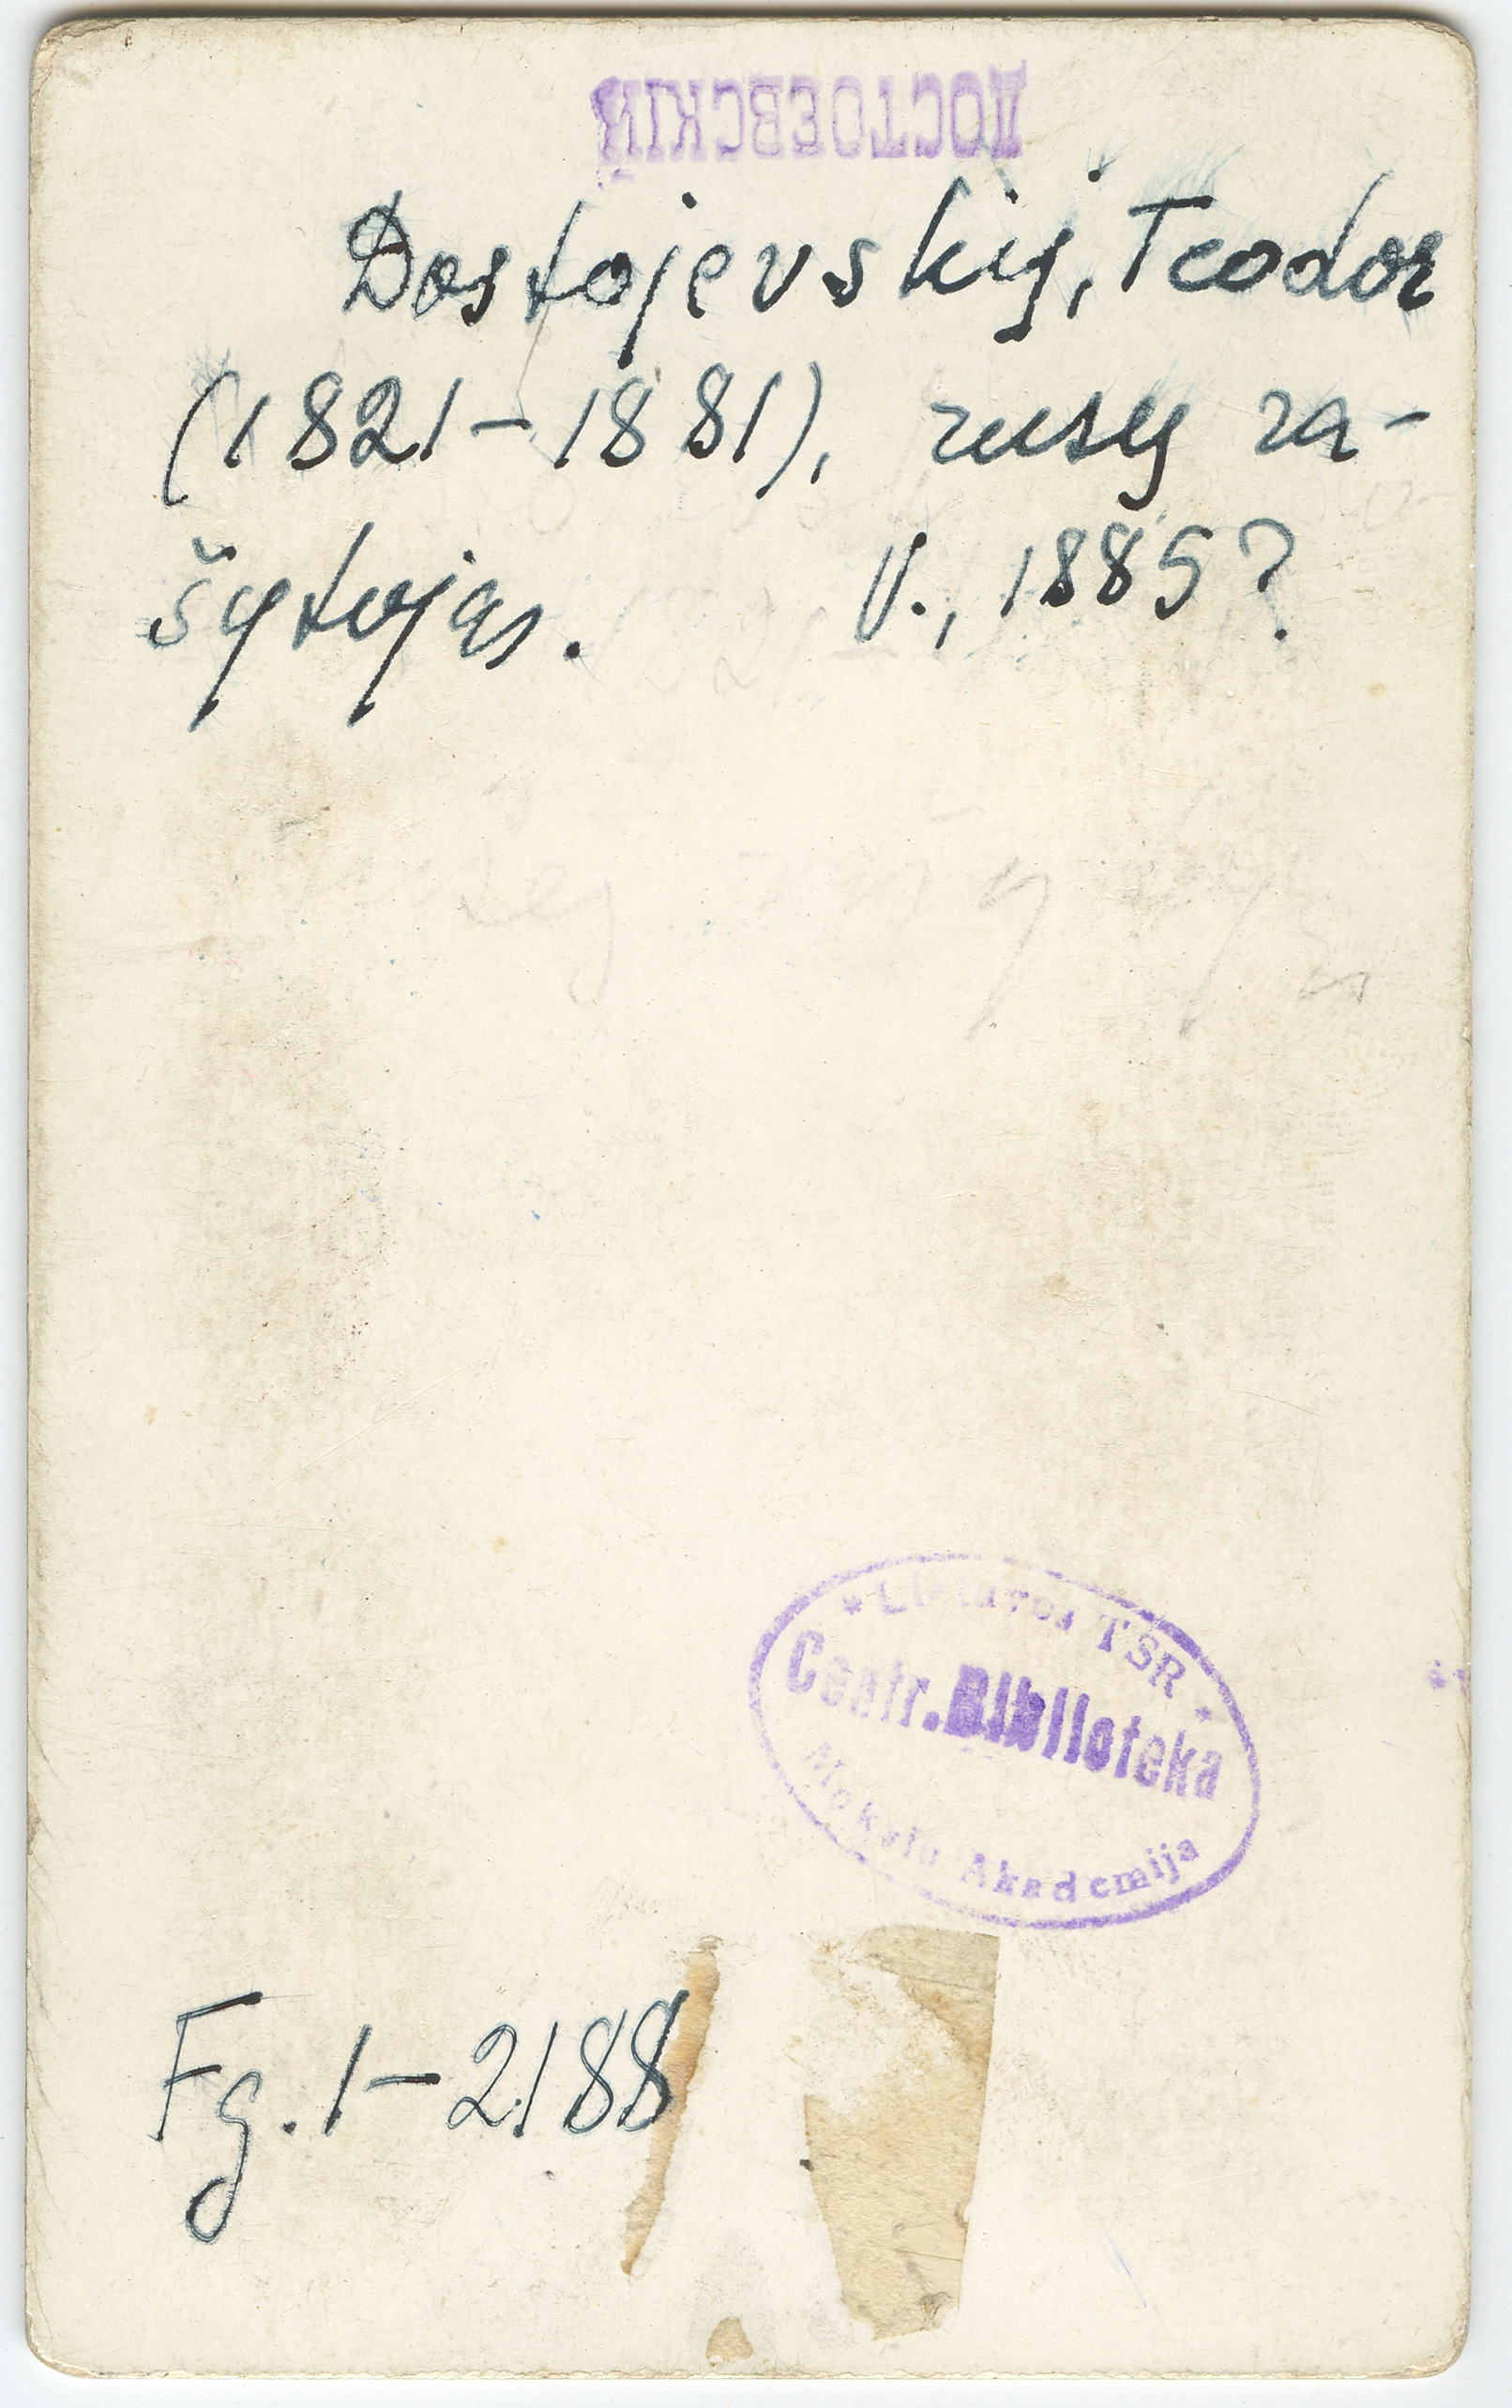 ДОСТОЕВСКІЙ
Dostojevskij, Teodor
(1821-1881), rusų ra-
šytojas. V., 1885?
* Lietuvos TSR *
Centr. Biblioteka
Mokslu Akademija
Fg. 1-2188